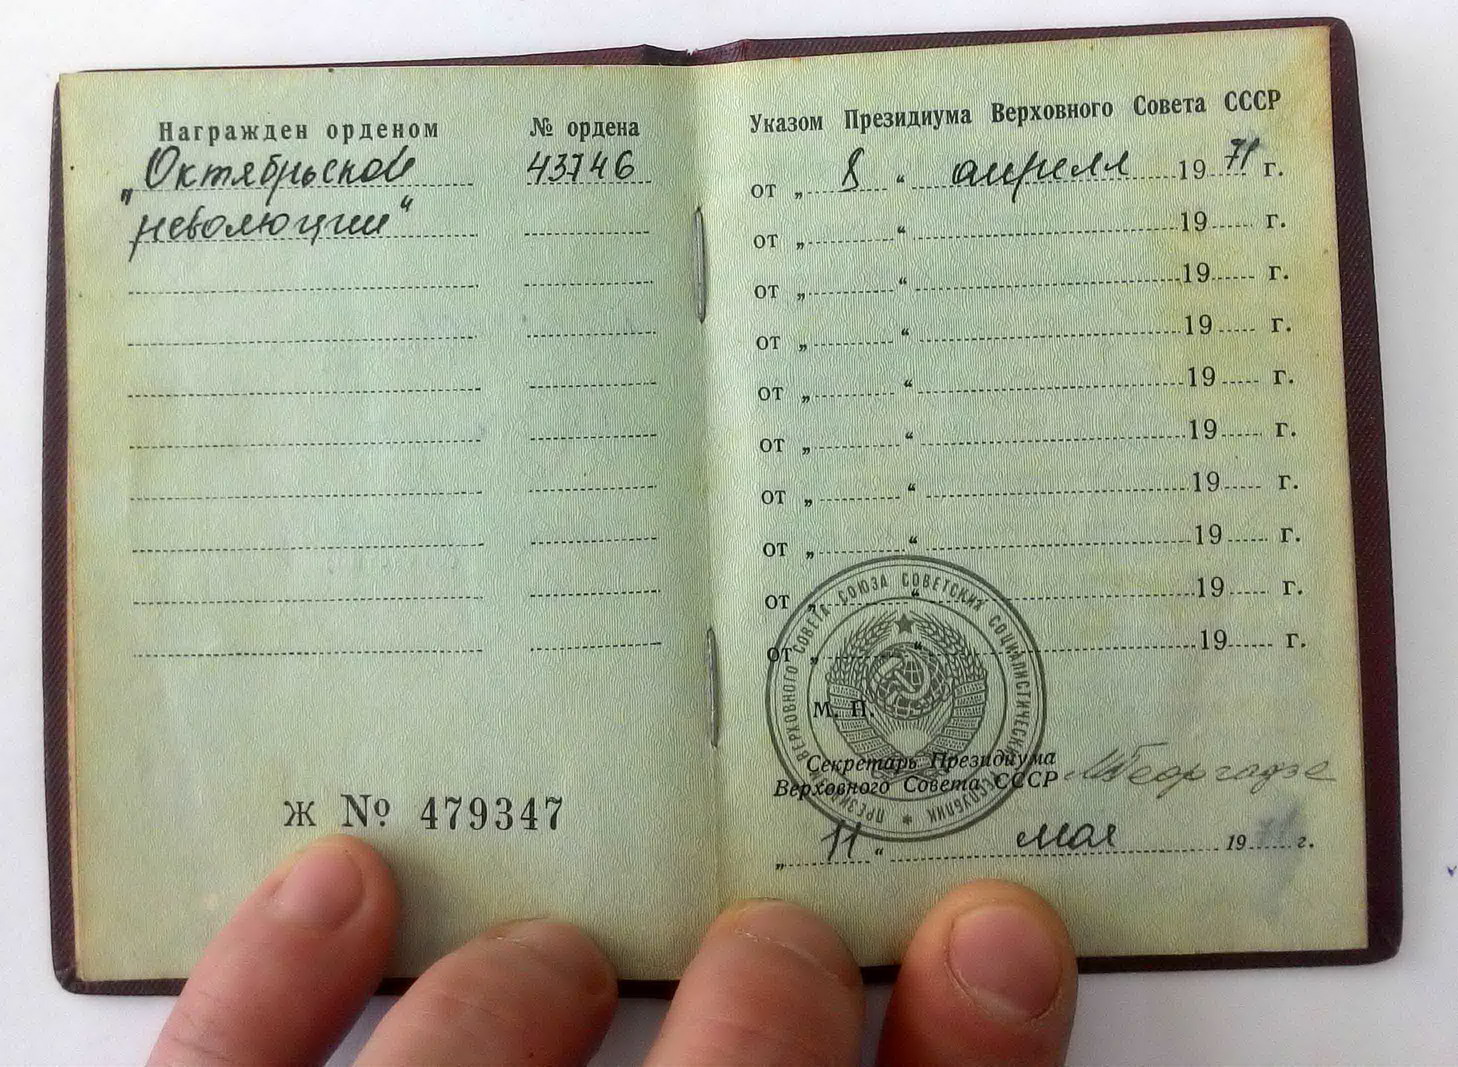 Награжден орденом
№ ордена
„Октябрьской
43746
революции“
Ж № 479347
Указом Президиума Верховного Совета СССР
от „ 8 “ апреля 1971 г.
от „ “ 19 г.
от „ “ 19 г.
от „ “ 19 г.
от „ “ 19 г.
от „ “ 19 г.
от „ “ 19 г.
от „ “ 19 г.
от „ “ 19 г.
от „ “ 19 г.
ПРЕЗИДИУМ ВЕРХОВНОГО СОВЕТА СОЮЗА СОВЕТСКИХ СОЦИАЛИСТИЧЕСКИХ РЕСПУБЛИК
М. П.
Секретарь Президиума
Верховного Совета СССР
МГеоргадзе
„ 11 “ мая 1971 г.